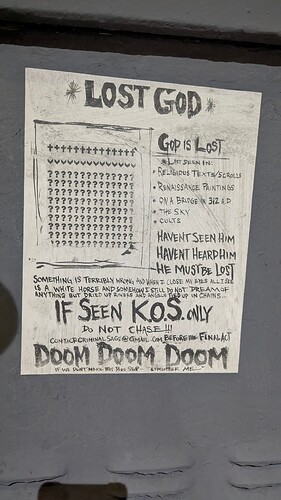 * LOST GOD *
††††††††††††††
♥♥♥♥♥♥♥♥♥♥♥♥♥♥
??????????????
??????????????
??????????????
??????????????
??????????????
??????????????
??????????????
??????????????
GOD IS LOST
* LAST SEEN IN:
• RELIGIOUS TEXTS/SCROLLS
• RENAISSANCE PAINTINGS
• ON A BRIDGE IN 312 A.D
• THE SKY
• CULTS
HAVENT SEEN HIM
HAVENT HEARD HIM
HE MUST BE LOST
SOMETHING IS TERRIBLY WRONG AND WHEN I CLOSE MY EYES ALL I SEE
IS A WHITE HORSE AND SOMEHOW I STILL DO NOT DREAM OF
ANYTHING BUT DRIED UP RIVERS AND ANGELS TIED UP IN CHAINS...
IF SEEN K.O.S. ONLY
DO NOT CHASE!!!
CONTACT CRIMINALSAGS@GMAIL.COM BEFORE THE FINAL ACT
DOOM DOOM DOOM
IF WE DON'T MAKE THIS REMEMBER ME